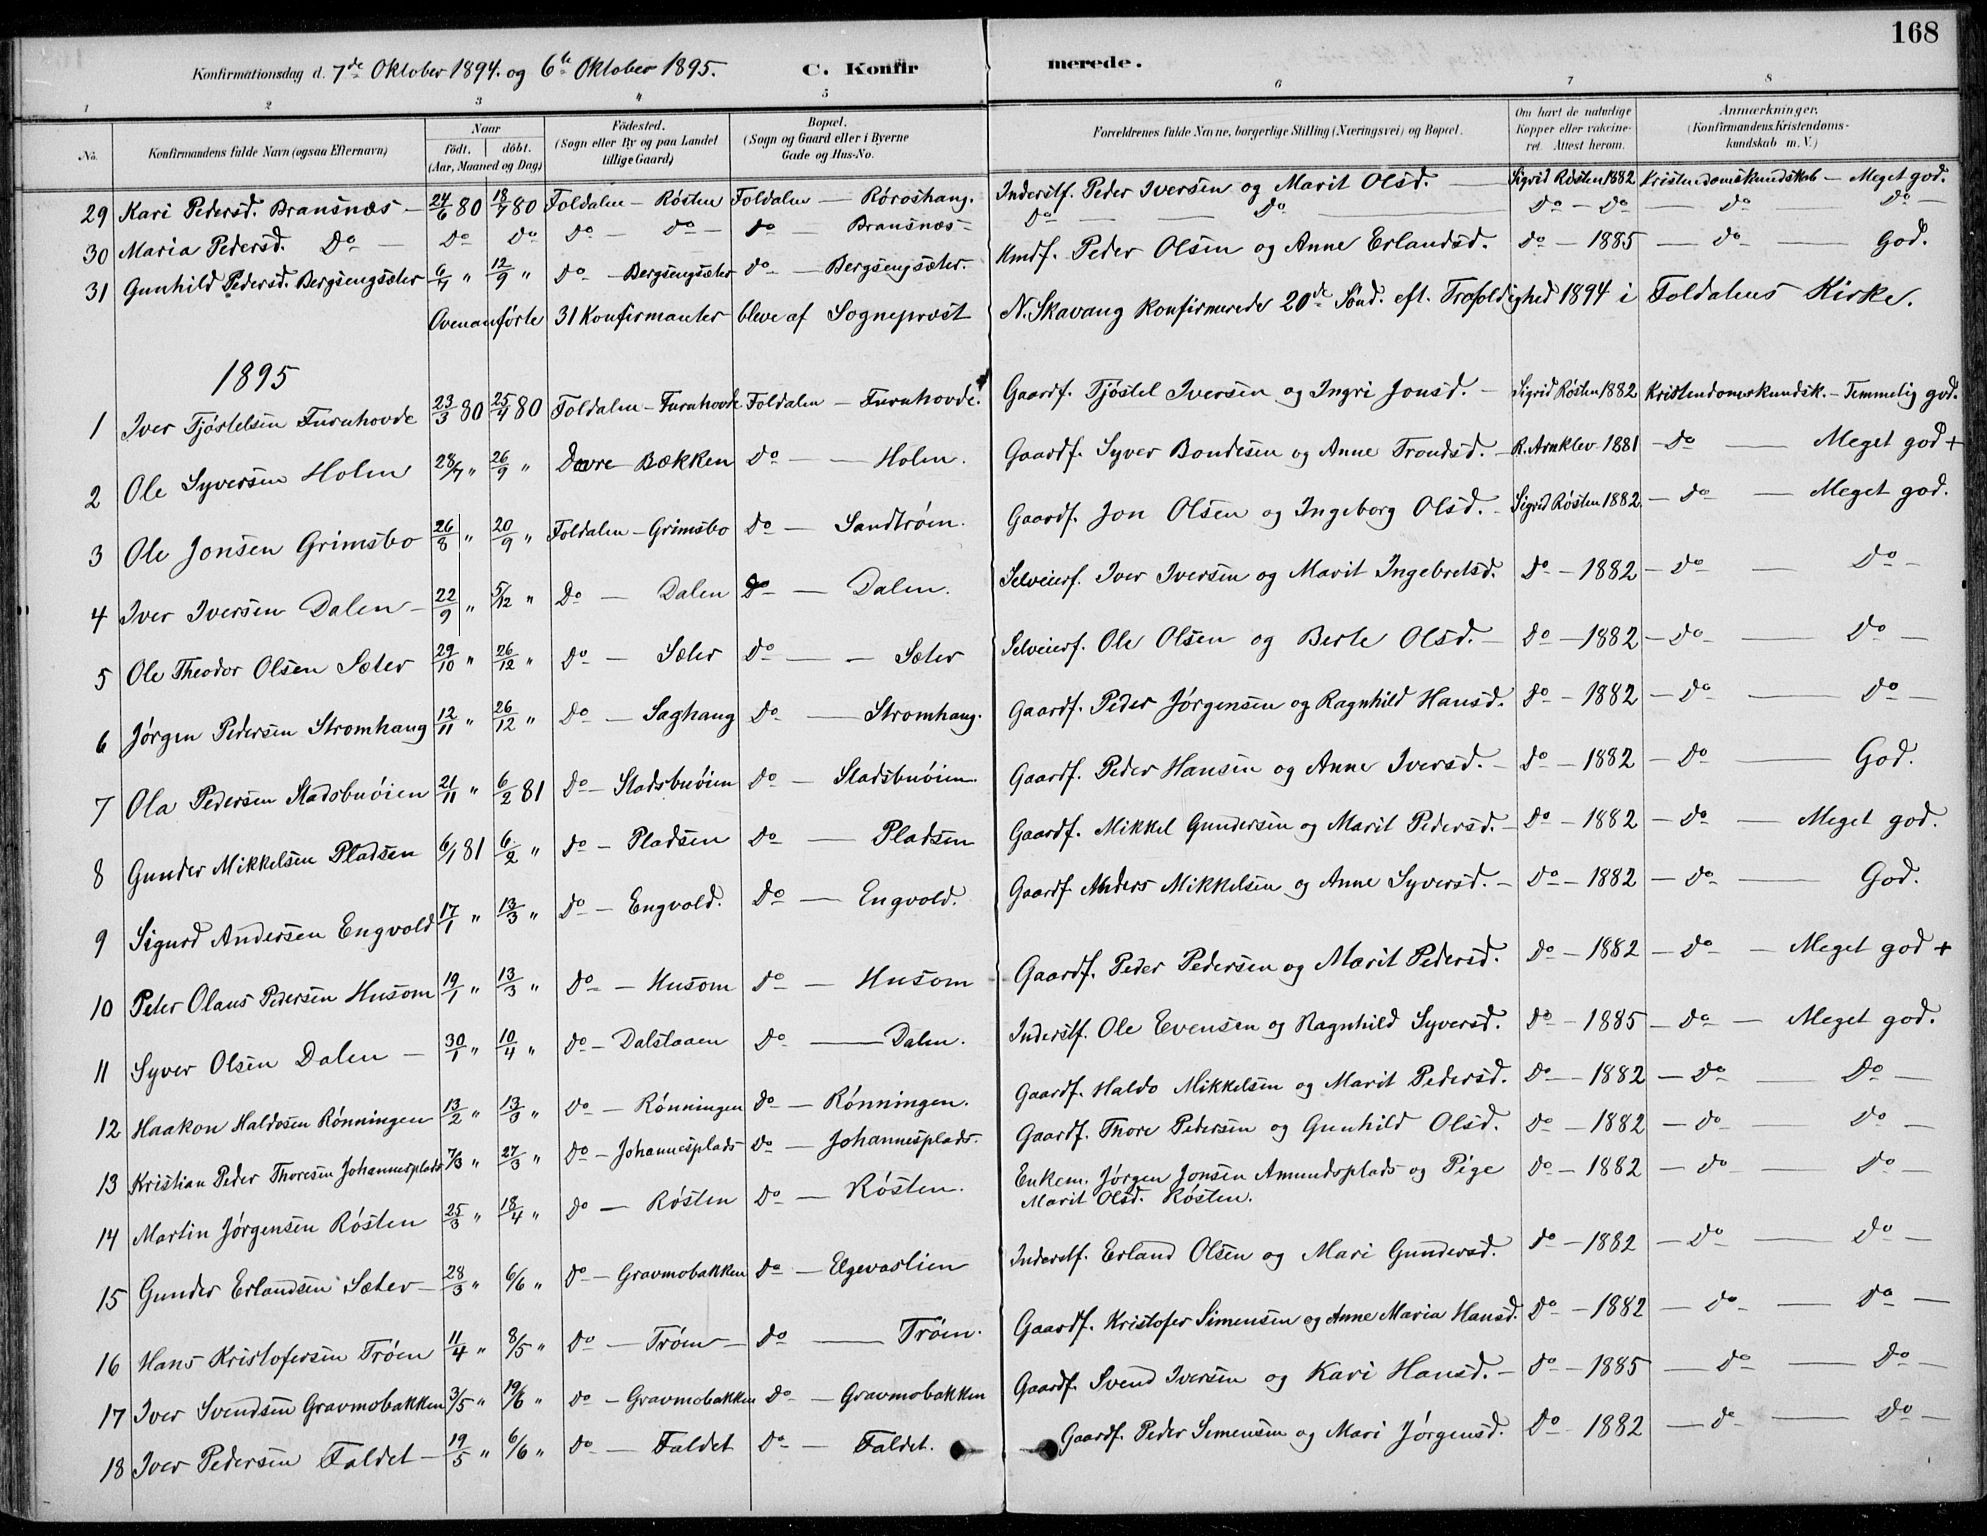 168
Konfirmationsdag d. 7de Oktober 1894. og 6te Oktober 1895. C. Konfirmerede.
1 2 3 4 5 6 7 8
No. Konfirmandens fulde Navn (ogsaa Efternavn) Naar født. døbt. (Aar, Maaned og Dag) Fødested. (Sogn eller By og paa Landet tillige Gaard) Bopæl. (Sogn og Gaard eller i Byerne Gade og Hus-No. Forældrenes fulde Navne, borgerlige Stilling (Næringsvei) og Bopæl. Om havt de naturlige Kopper eller vakcineret. Attest herom. Anmærkninger. (Konfirmandens Kristendomskundskab m. V.)
29 Kari Pedersd. Bransnæs – 24/6 80 18/7 80 Foldalen – Røsten Foldalen – Røroshaug. Inderstf. Peder Iversen og Marit Olsd. – Sigrid Røsten 1882 Kristendomskundskab – Meget god.
30 Maria Pedersd. Do – Do Do Do – Do – Do – Bransnæs – Do – Do – Do – Do – Do – Do –
31 Gunhild Pedersd. Bergsengsæter 6/7 " 12/9 " Do – Bergsengsæter Do – Bergsengsæter. Kmdf. Peder Olsen og Anne Erlandsd. Do – 1885 – Do – God.
Ovenanførte 31 Konfirmanter bleve af Sogneprest N. Skavang konfirmerede 20de Sønd. eft. Trefoldighed 1894 i Foldalens Kirke.
1895
1 Iver Tjøstelsen Furuhovde 23/3 80 25/4 80 Foldalen – Furuhovde Foldalen – Furuhovde. Gaardf. Tjøstel Iversen og Ingri Jonsd. – Sigrid Røsten 1882 Kristendomskundsk. – Temmelig god.
2 Ole Syversen Holen 28/7 " 26/9 " Dovre – Bækken Do – Holen. Gaardf. Syver Bondesen og Anne Trondsd. – R. Arnklev 1881 – Do – Meget god +
3 Ole Jonsen Grimsbo 26/8 " 20/9 " Foldalen – Grimsbo Do – Sandtrøen. Gaardf. Jon Olsen og Ingeborg Olsd. – Sigrid Røsten 1882. – Do – Meget god.
4 Iver Iversen Dalen – 22/9 " 5/12 " Do – Dalen Do – Dalen. Selveierf. Iver Iversen og Marit Ingebretsd. Do – 1882 – Do – Do –
5 Ole Theodor Olsen Sæter 29/10 " 26/12 " Do – Sæter Do – – Sæter Selveierf. Ole Olsen og Berte Olsd. – Do – 1882 – Do – Do –
6 Jørgen Pedersen Stromhaug 12/11 " 26/12 " Do – Saghaug Do – Stromhaug. Gaardf. Peder Jørgensen og Ragnhild Hansd. Do – 1882 – Do – Do –
7 Ola Pedersen Stadsbuøien 21/11 " 6/2 81 Do – Stadsbuøien Do – Stadsbuøien. Gaardf. Peder Hansen og Anne Iversd. – Do – 1882 – Do – God.
8 Gunder Mikkelsen Pladsen 6/1 81 6/2 " Do – Pladsen Do – Pladsen Gaardf. Mikkel Gundersen og Marit Pedersd. – Do – 1882 – Do – Meget god.
9 Sigurd Andersen Engvold 17/1 " 13/3 " Do – Engvold. Do – Engvold. Gaardf. Anders Mikkelsen og Anne Syversd. – Do – 1882 – Do – God.
10 Peter Olaus Pedersen Husom 19/1 " 13/3 " Do – Husom Do – Husom Gaardf. Peder Pedersen og Marit Pedersd. Do – 1882 – Do – Meget god +
11 Syver Olsen Dalen – 30/1 " 10/4 " Do – Dalstaaen Do – Dalen. Inderstf. Ole Evensen og Ragnhild Syversd. Do – 1885 – Do – Meget god.
12 Haakon Haldosen Rønningen 13/2 " 13/3 " Do – Rønningen Do – Rønningen. Gaardf. Haldo Mikkelsen og Marit Pedersd. Do – 1882 – Do – Do –
13 Kristian Peder Thoresen Johannesplads 7/3 " 27/3 " Do – Johannesplads Do – Johannesplads. Gaardf. Thore Pedersen og Gunhild Olsd. Do – 1882 – Do – Do –
14 Martin Jørgensen Røsten 25/3 " 18/4 " Do – Røsten Do – Røsten. Enkem. Jørgen Jonsen Amundsplads og Pige Do – 1882 – Do – Do –
Marit Olsd. Røsten.
15 Gunder Erlandsen Sæter – 28/3 " 6/6 " Do – Gravmobakken Do – Elgevaslien Inderstf. Erland Olsen og Mari Gundersd. Do – 1882 – Do – Do –
16 Hans Kristofersen Trøen 11/4 " 8/5 " Do – Trøen – Do – Trøen. Gaardf. Kristofer Simensen og Anne Maria Hansd. Do – 1882 – Do – Do –
17 Iver Svendsen Gravmobakken 3/5 " 19/6 " Do – Gravmobakken Do – Gravmobakken Gaardf. Svend Iversen og Kari Hansd. – Do – 1885 – Do – Do –
18 Iver Pedersen Faldet – 19/5 " 6/6 " Do – Faldet Do – Faldet. Gaardf. Peder Simensen og Mari Jørgensd. Do – 1882 – Do – Do –